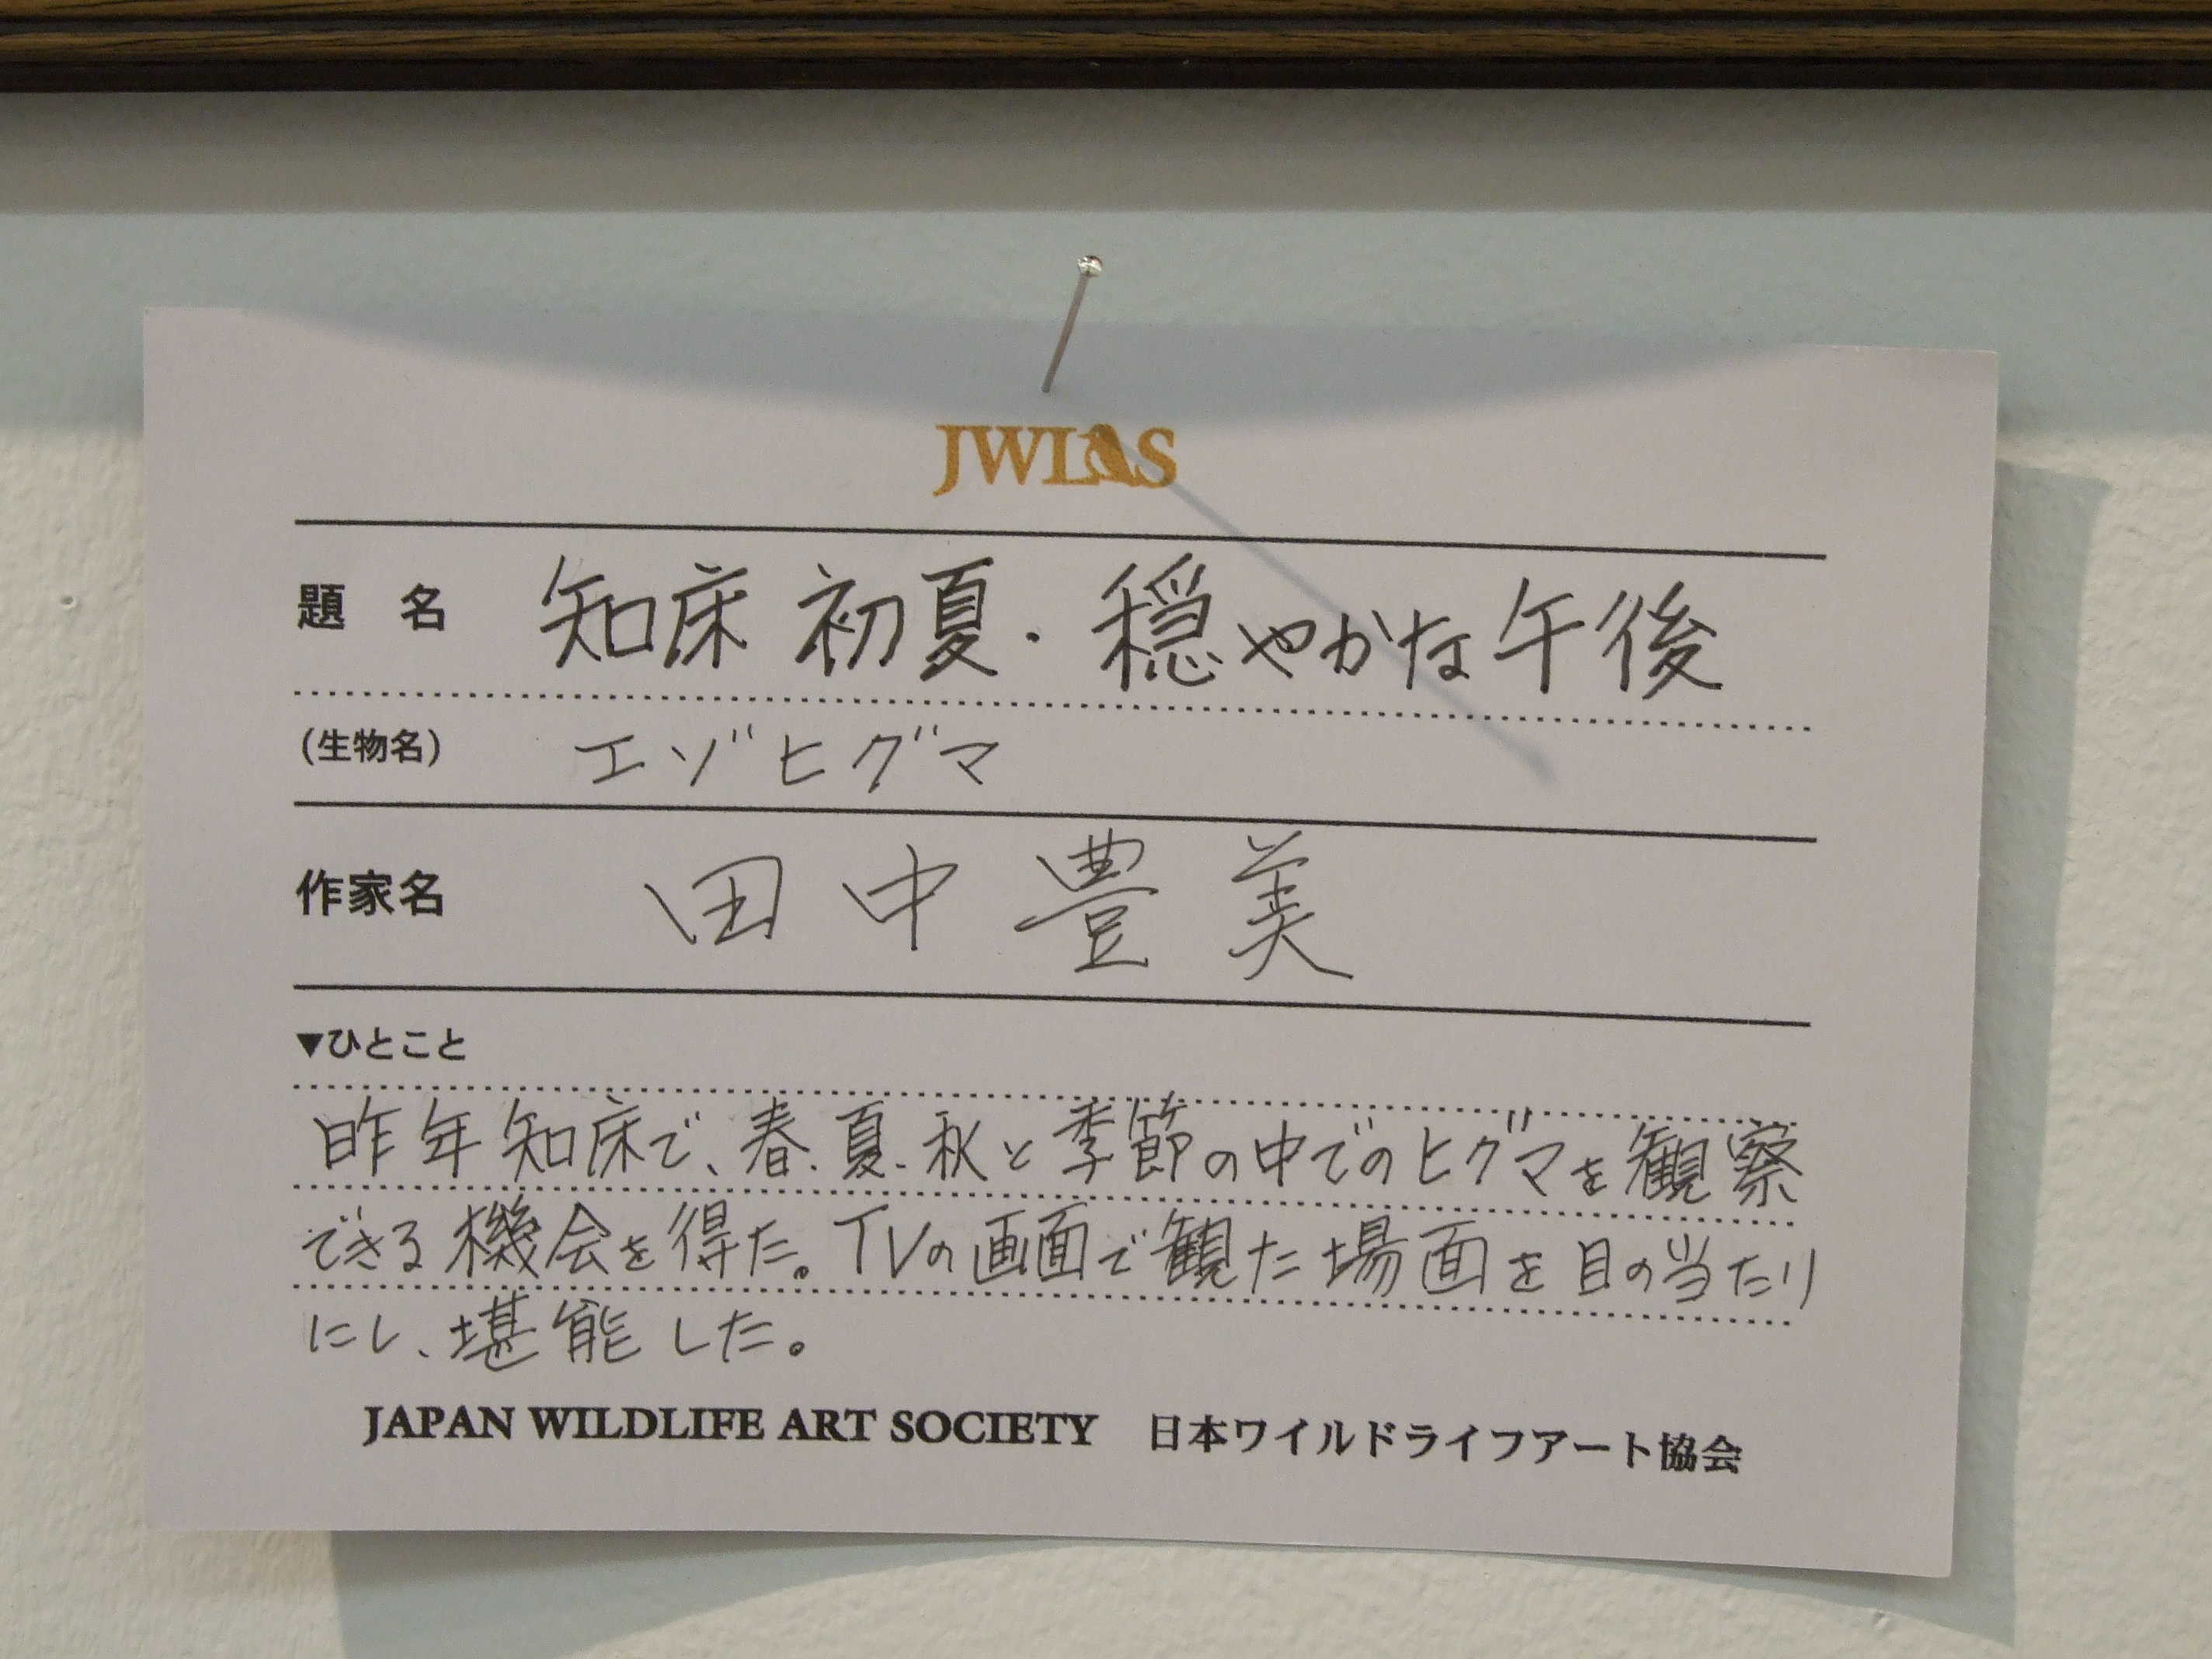 JWLAS
題 名 知床 初夏・穏やかな午後
(生物名) エゾヒグマ
作家名 田中豊美
▼ひとこと
昨年知床で、春、夏、秋と季節の中でのヒグマを観察
できる機会を得た。TVの画面で観た場面を目の当たり
にし、堪能した。
JAPAN WILDLIFE ART SOCIETY 日本ワイルドライフアート協会